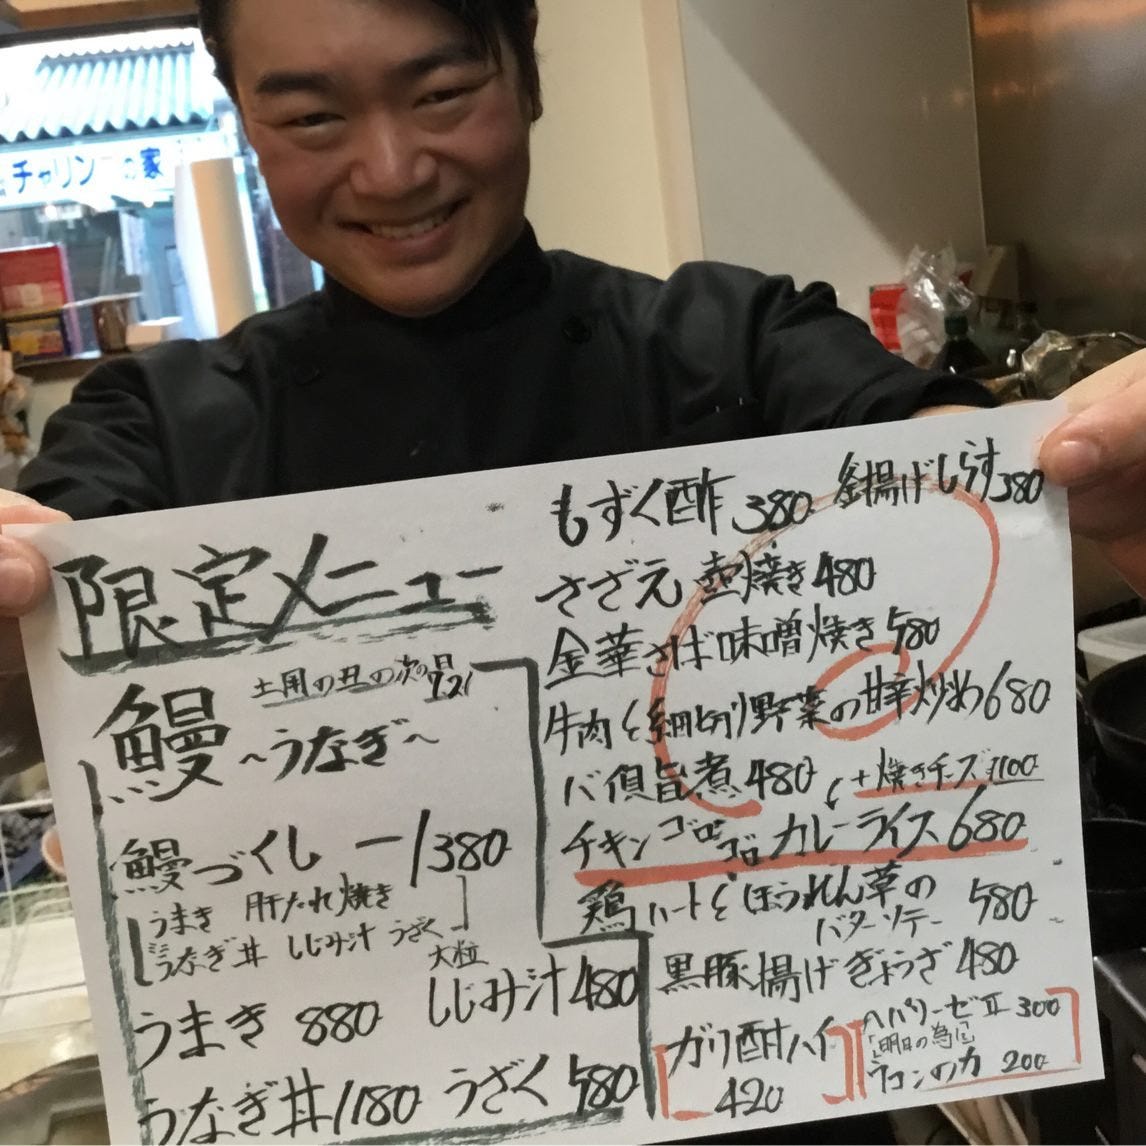 チャリン
の家
限定メニュー
土用の丑の次の日
7.21
鰻
～うなぎ～
鰻づくし ー 1380
うまき 肝たれ焼き
ミニうなぎ丼 しじみ汁 うざく
うまき 880
大粒
しじみ汁 480
うなぎ丼 1180
うざく 580
もずく酢 380
釜揚げしらす 380
さざえ壺焼き 480
金華さば味噌焼き 580
牛肉と細切り野菜の甘辛炒め 680
バイ貝旨煮 480
+焼きチーズ ¥100
チキンゴロゴロカレーライス 680
鶏ハートとほうれん草の
バターソテー 580
黒豚揚げぎょうざ 480
ガリ酎ハイ
420
ヘパリーゼⅡ 300
「明日の為に」
ウコンの力 200